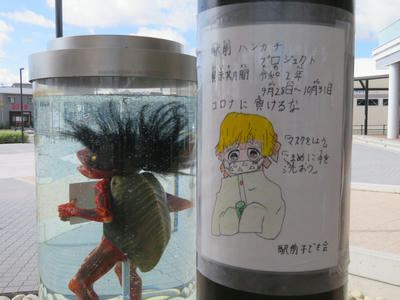 駅前ハンカチ
プロジェクト
展示期間 令和2年
9月28日〜10月31日
コロナに負けるな
「マスクをしよう
こまめに手を
洗おう」
駅前子ども会